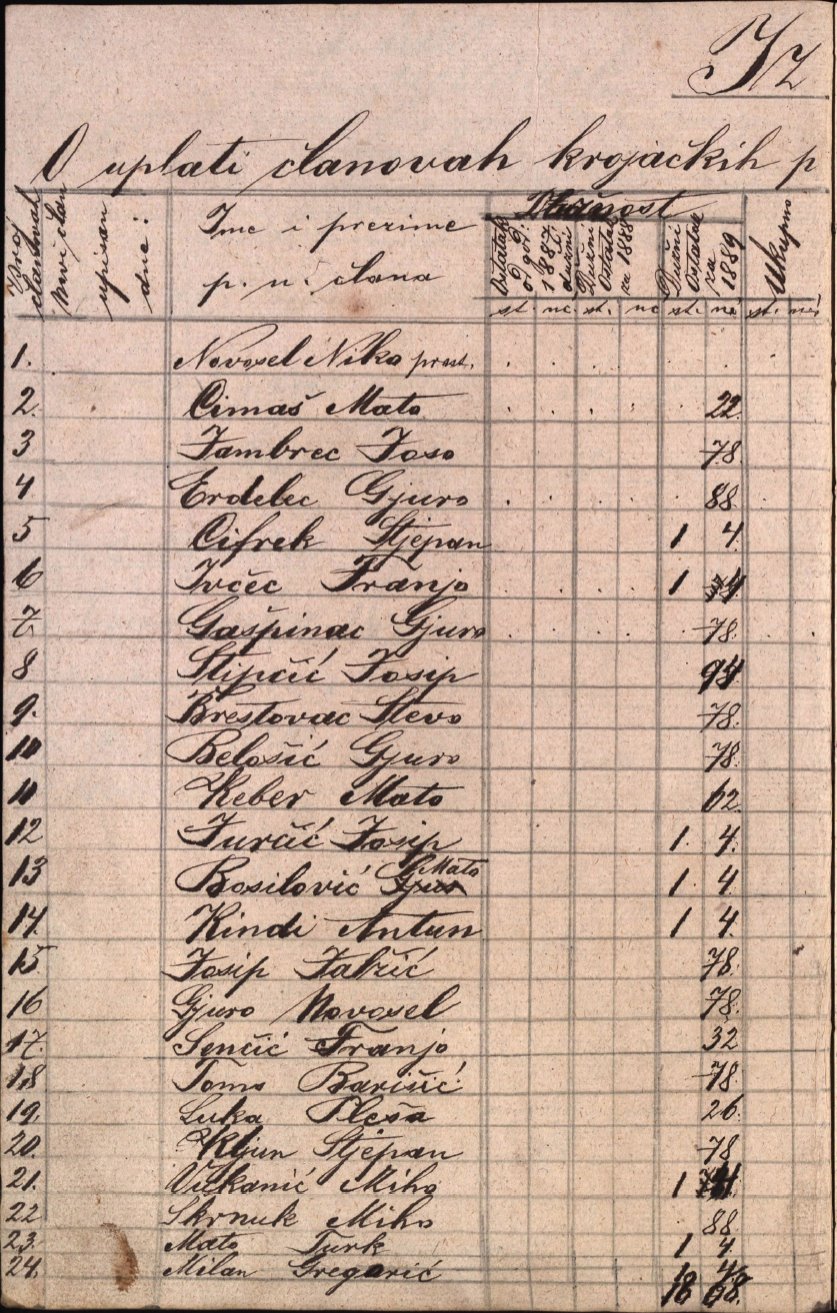 Iz
O uplati članovah krojačkih p
Broj članovah
Novi član upisan dne:
Ime i prezime
p. n. člana
Dužnost
Ostatak od god: 1887 dužni
Dužni Ostatak za 1888
Dužni Ostatak za 1889
Ukupno
st. nč. st. nč st. nč st. nč
1. Novosel Niko
2. Cimaš Mato 22
3 Jambrec Joso 78
4 Erdelec Gjuro 88
5 Cifrek Stjepan 1 4
6 Ivčec Franjo 1
7 Gašpinac Gjuro 78
8 Stipčić Josip 94
9. Brestovac Stevo 78
10 Belošić Gjuro 78
11 Keber Mato 62
12 Jurčić Josip 1 4
13 Bosilović Mato 1 4
14. Kindi Antun 1 4
15 Josip 78
16 Gjuro Novosel 78
17. Senčić Franjo 32
18 Tomo Barišić 78
19. Luka Pleša 26
20. Kljun Stjepan 78
21. Vukanić Miho 1
22 Skrnuk Miho 88
23. Mato Turk 1 4
24. Milan Gregorić 1 4
18